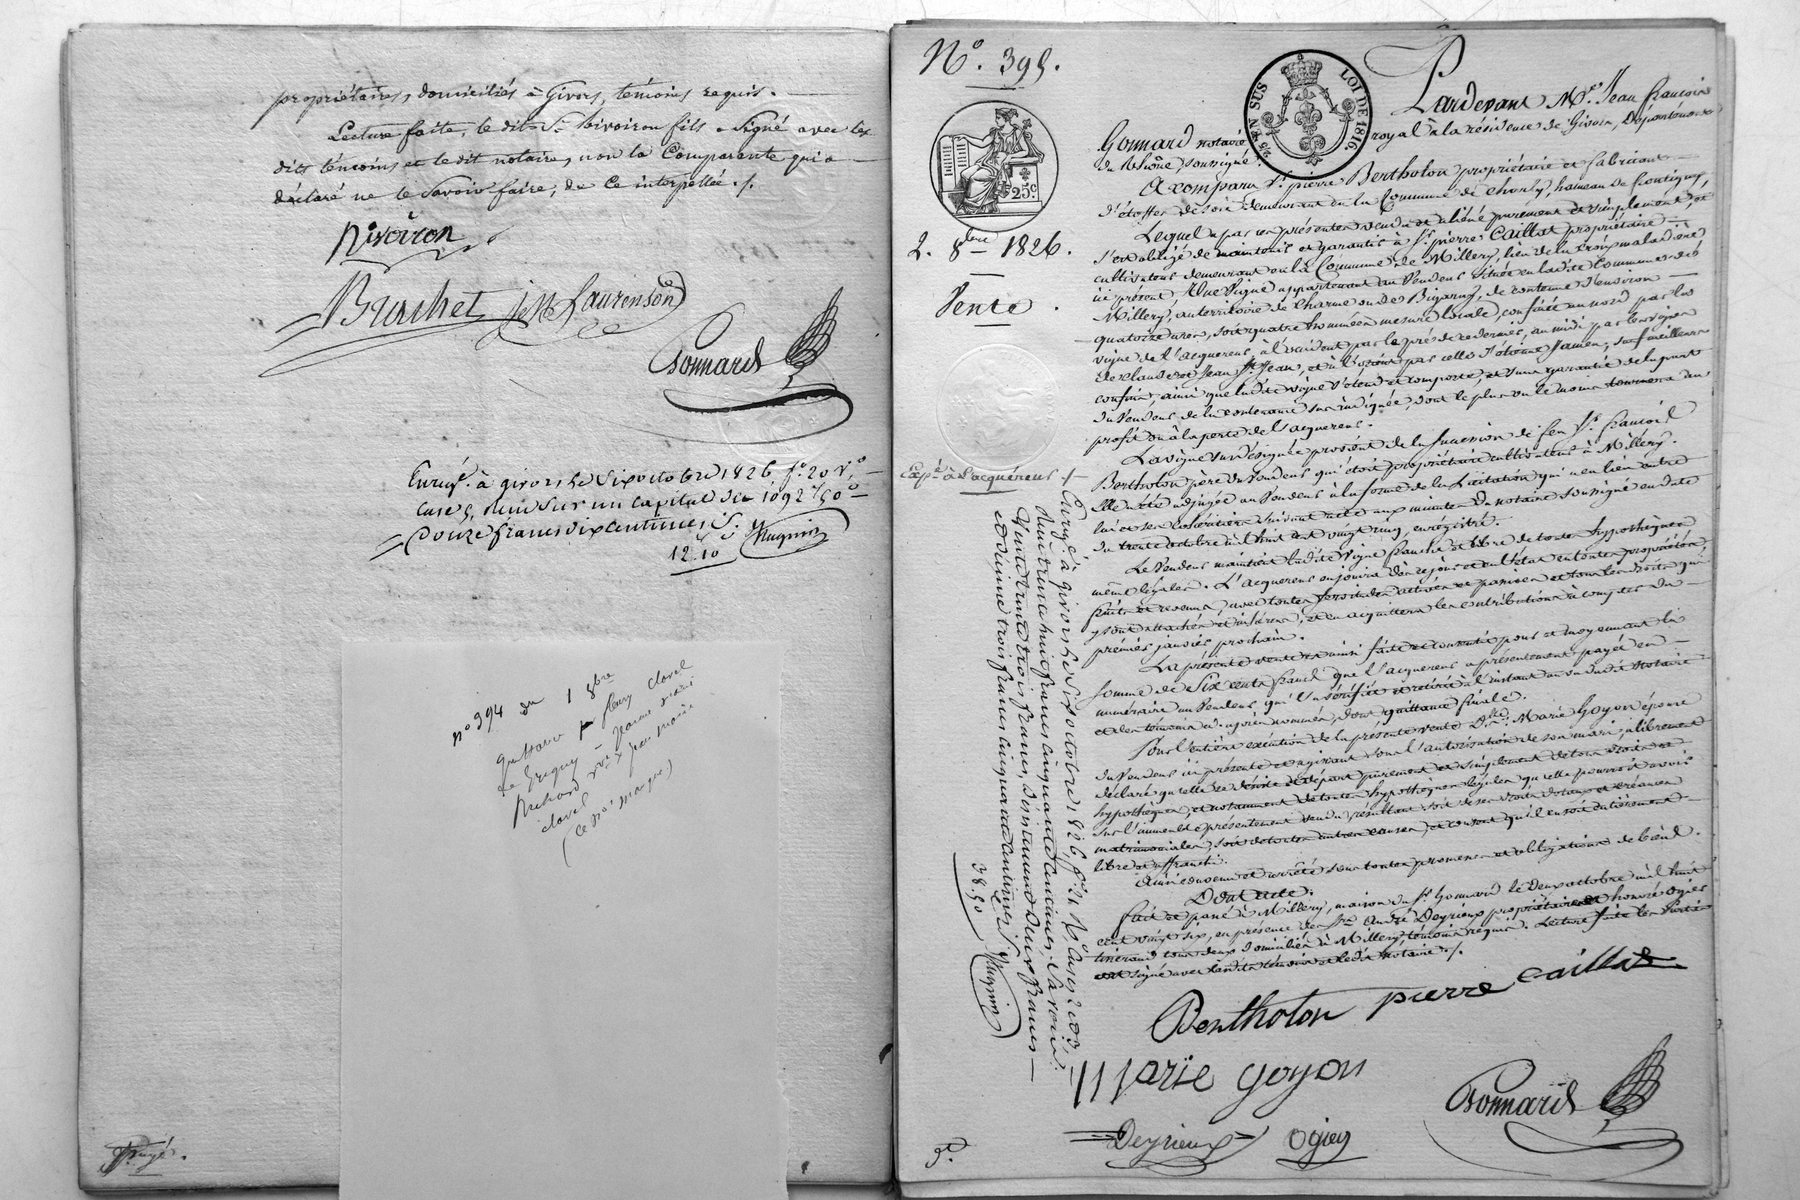 propriétaires, domiciliés à Givors, témoins requis.
Lecture faite, le dit Sr. Nivoiron fils a signé avec les
dits témoins et le dit notaire, non la Comparante qui a
déclaré ne le savoir faire; de ce interpellée ./.
Nivoiron
Brachet
Laurenson
Gonnard
Enregé. à givors le Six octobre 1826 fo. 20 Vo.
Case 5, sur un capital de 1092 f 50 c
Douze francs dix Centimes
12.10
n° 394 du 1 8bre
quittance fleury clavel
de Grigny jeanne marie
Richard marie
clavel
(ce no. manque)
No. 395.
25 EN SUS
LOI DE 1816.
25c.
2. 8bre 1826.
Vente
Expé. à l'acquéreur
Pardevant Me. Jean François
Gonnard notaire royal à la résidence de Givors, Département
du Rhône, soussigné.
A comparu Sr. pierre Bertholon propriétaire et fabricant
d'étoffes de soie demeurant en la Commune de Charly, hameau de frontigny,
Lequel a par ces présentes vendu et aliéné purement et simplement, et
s'est obligé de maintenir et garantir à Sr. pierre Caillat propriétaire
cultivateur demeurant en la Commune de Millery, lieu de la croix maladière
ici présent, Une Vigne appartenant au Vendeur située en ladite Commune de
Millery, au territoire de Charme ou de Bizarny, de contenue d'environ
quatorze ares, soit quatre hommées mesure locale, confinée au nord par la
vigne de l'acquéreur, à l'occident par le pré de au midi par la vigne
de Claude et Jean St. Jean, et à l'orient par celle d'étienne Jamen, sauf meilleurs
confins, ainsi que ladite vigne s'étend et comporte, et sans garantie de la part
du Vendeur de la contenance sus indiquée, dont le plus ou le moins tournera au
profit ou à la perte de l'acquéreur.
La vigne sus désignée provient de la succession de feu Sr. françois
Bertholon père du Vendeur qui étoit propriétaire cultivateur à Millery.
Elle a été adjugée au Vendeur à la forme de la Licitation qui a eu lieu entre
lui et ses cohéritiers suivant acte aux minutes du notaire soussigné en date
du trente octobre mil huit cent vingt cinq, enregistré.
Le Vendeur maintient ladite vigne franche et libre de toutes hypothèques
même légales. L'acquéreur en jouira dès ce jour et en l'état en toute propriété,
fruits et revenus, avec toutes ses aisances et tous les droits qui
y sont attachés et inhérens, et en acquittera les contributions à compter du
premier janvier prochain.
La présente vente est ainsi faite et consentie pour et moyennant la
somme de Six cents francs que l'acquéreur a présentement payée en
numéraire au Vendeur qui l'a vérifiée et retirée à l'instant au vu dudit Notaire
et des témoins ci-après nommés, dont quittance finale.
Pour l'entière exécution de la présente vente De. Marie Goyon épouse
du Vendeur ici présente et agissant sous l'autorisation de son mari, a librement
déclaré qu'elle se désiste et départ purement et simplement de tous droits et
hypothèques, et notamment de toutes hypothèques légales qu'elle pourroit avoir
sur l'immeuble présentement vendu résultant soit de ses droits dotaux et créances
matrimoniales, soit de toutes autres causes, et consent qu'il en soit entièrement
libre et affranchi.
Ainsi convenu et arrêté sous toutes promesses et obligations de biens.
Dont acte.
fait et passé à Millery, maison du Sr. Gonnard le Deux octobre mil huit
cent vingt six, en présence de Srs. André Deyrieux propriétaire et honoré Ogier
tisserand tous deux domiciliés à Millery, témoins requis. Lecture faite les Parties
ont signé avec lesdits témoins et ledit Notaire ./.
Bertholon pierre caillat
Marie goyon
Gonnard
Deyrieux
Ogier
Enregé. à givors le Six octobre 1826, fo. 21 Ro. Cases 2 et 3
Reçu trente huit francs cinquante Centimes, Savoir:
Vente trente trois francs, désistement deux francs
et décime trois francs cinquante Centimes
38.50